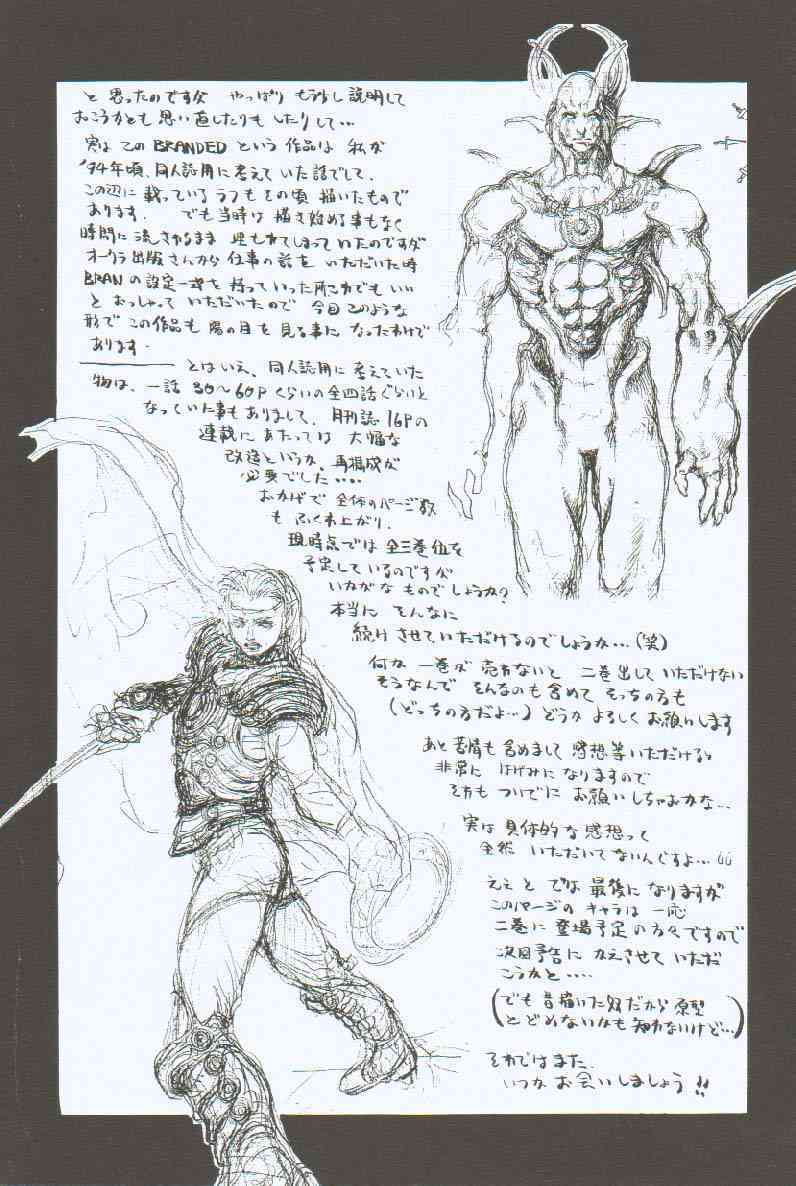 と思ったのですが やっぱりもう少し説明して
おこうかとも思い直したりもしたりして…
実はこのBRANDEDという作品は 私が
'94年頃、同人誌用に考えていた話でして、
この辺に載っているラフもその頃描いたもので
あります. でも当時は描き始める事もなく
時間に流されるまま 埋もれてしまっていたのですが
オークラ出版さんから仕事の話をいただいた時
BRANの設定一式を持っていった所これでもいい
とおっしゃっていただいたので 今回このような
形でこの作品も陽の目を見る事になったわけで
あります.
とはいえ、同人誌用に考えていた
物は、一話30〜60Pくらいの全四話ぐらいと
なっていた事もありまして、月刊誌16Pの
連載にあたっては 大幅な
改造というか、再構成が
必要でした‥‥
おかげで全体のページ数
もふくれ上がり、
現時点では全三巻位を
予定しているのですが
いかがなものでしょうか?
本当に そんなに
続けさせていただけるのでしょうか…(笑)
何か 一巻が売れないと 二巻出していただけない
そうなんで そんなのも含めて そっちの方も
(どっちの方だよ…)どうかよろしくお願いします
あと苦情も含めまして感想等いただけると
非常にはげみになりますので
それもついでに お願いしちゃおかな…
実は具体的な感想って
全然いただいてないんですよ…
ええと では最後になりますが
このページのキャラは一応
二巻に登場予定の方々ですので
次回予告にかえさせていただ
こうかと‥‥
(でも昔描いた奴だから原型
とどめないかも知れないけど…)
それではまた、
いつかお会いしましょう!!